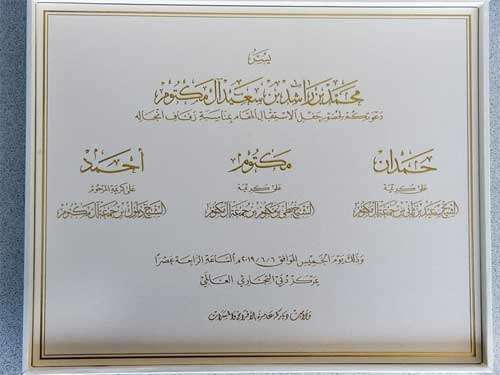 يسر
محمد بن راشد بن سعيد آل مكتوم
دعوتكم لحضور حفل الاستقبال المقام بمناسبة زفاف أنجاله
حمدان
على كريمة
الشيخ سعيد بن ثاني بن جمعة آل مكتوم
مكتوم
على كريمة
الشيخ بن مكتوم بن جمعة آل مكتوم
أحمد
على كريمة المرحوم
الشيخ دلموك بن جمعة آل مكتوم
وذلك يوم الخميس الموافق ٢٠١٩/٦/٦م الساعة الرابعة عصراً
بمركز دبي التجاري العالمي
ودامت دياركم عامرة بالأفراح والمسرات